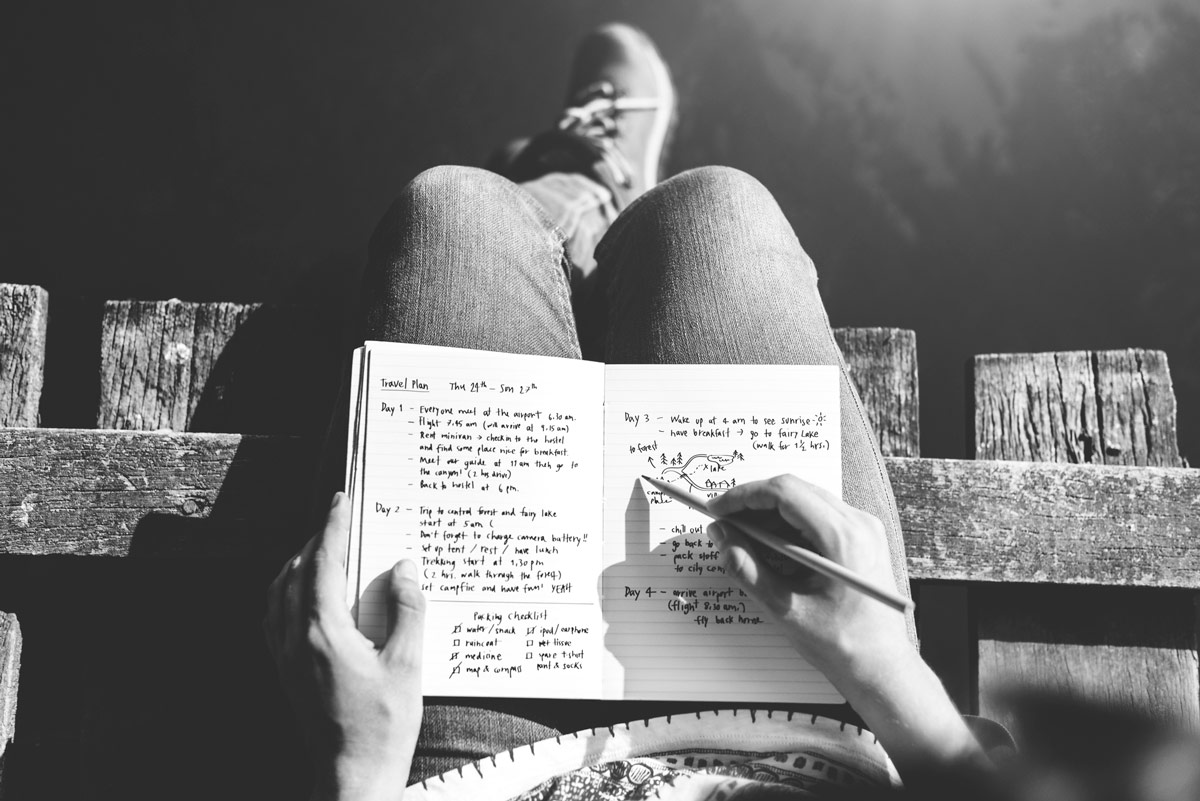 Travel Plan Thu 24th – Sun 27th
Day 1 – Everyone meet at the airport 6.30 am.
– Flight 7.45 am (will arrive at 9.15 am)
– Rent minivan → checkin to the hostel
and find some place nice for breakfast.
– Meet our guide at 11 am then go to
the canyon! (2 hrs drive)
– Back to hostel at 6 pm.
Day 2 – Trip to central forest and fairy lake
start at 5 am (
– Don't forget to charge camera battery!!
– Set up tent / rest / have lunch
Trekking start at 1.30 pm
(2 hrs. walk through the forest)
set campfire and have fun! YEAH
Packing Checklist
water / snack
raincoat
medicine
map & compass
ipod / earphone
wet tissue
spare t-shirt
pant & socks
Day 3 – Wake up at 4 am to see sunrise
– have breakfast → go to fairy Lake
(walk for 1 1/2 hrs.)
to forest
lake
camp
place
– chill out
– go back to
– pack stuff
to city
Day 4 – arrive airport
(flight 8.30 am.)
fly back home